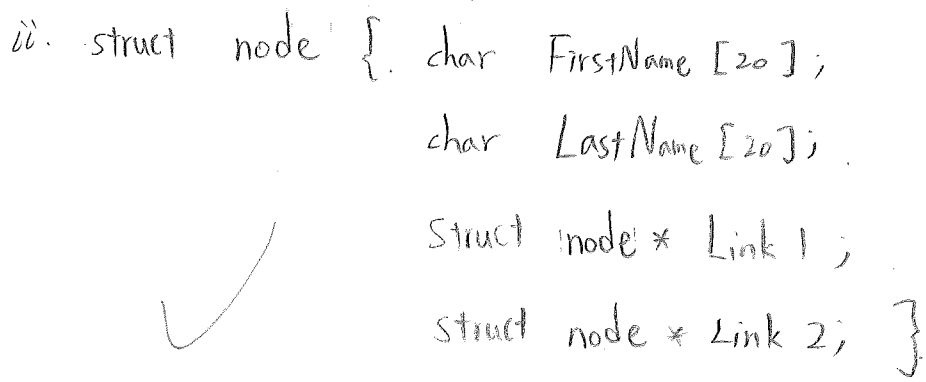 ii. struct node { char FirstName [20];
char LastName [20];
struct node * Link 1;
struct node * Link 2; }